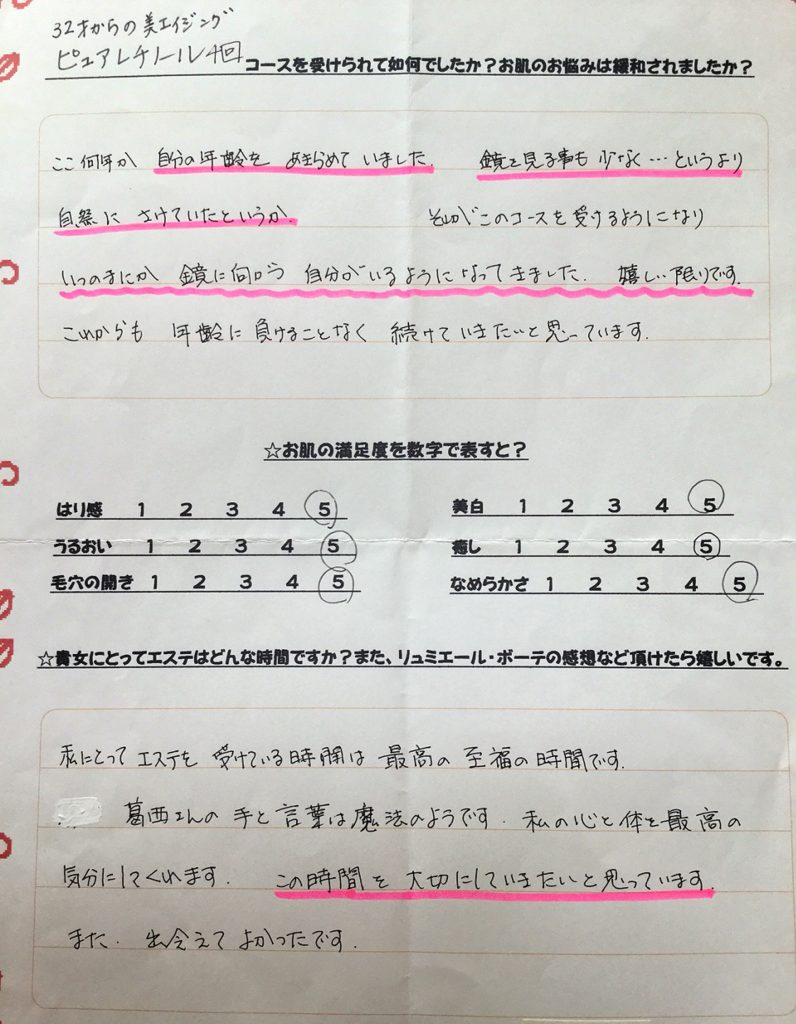 32才からの美エイジング
ピュアレチノール4回 コースを受けられて如何でしたか？お肌のお悩みは緩和されましたか？
ここ何年か 自分の年齢を あきらめて いました. 鏡を見る事も 少なく…というより
自然に さけていたというか. それが このコースを 受けるようになり
いつのまにか 鏡に向かう 自分がいるようになってきました. 嬉しい限りです.
これからも 年齢に 負けることなく 続けて いきたいと思っています.
☆お肌の満足度を数字で表すと？
はり感 1 2 3 4 5 美白 1 2 3 4 5
うるおい 1 2 3 4 5 癒し 1 2 3 4 5
毛穴の開き 1 2 3 4 5 なめらかさ 1 2 3 4 5
☆貴女にとってエステはどんな時間ですか？また、リュミエール・ボーテの感想など頂けたら嬉しいです。
私にとって エステを 受けている時間は 最高の 至福の時間です.
葛西さんの 手と言葉は魔法のようです. 私の心と体を最高の
気分にしてくれます. この時間を 大切にしていきたいと思っています.
また. 出会えて よかったです.